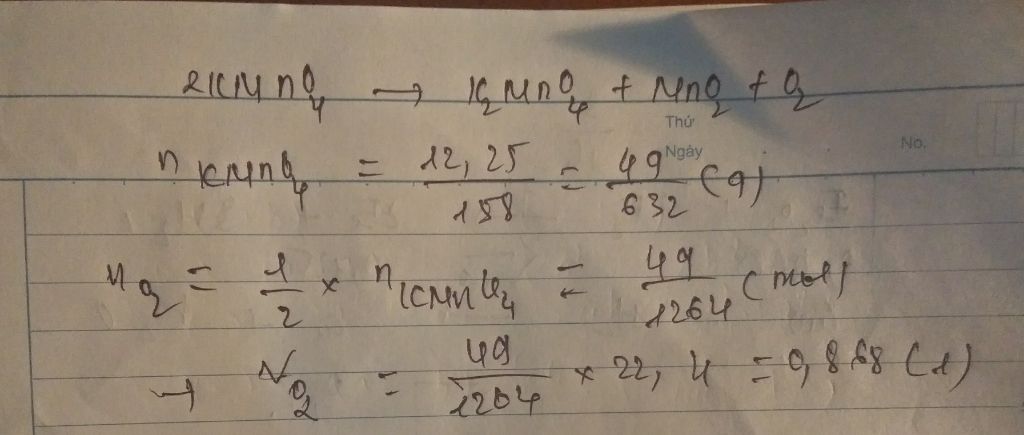 2KMnO4 → K2MnO4 + MnO2 + O2
Thứ
Ngày
No.
nKMnO4 = 12,25/158 = 49/632 (g)
nO2 = 1/2 × nKMnO4 = 49/1264 (mol)
→ VO2 = 49/1264 × 22,4 = 0,868 (l)